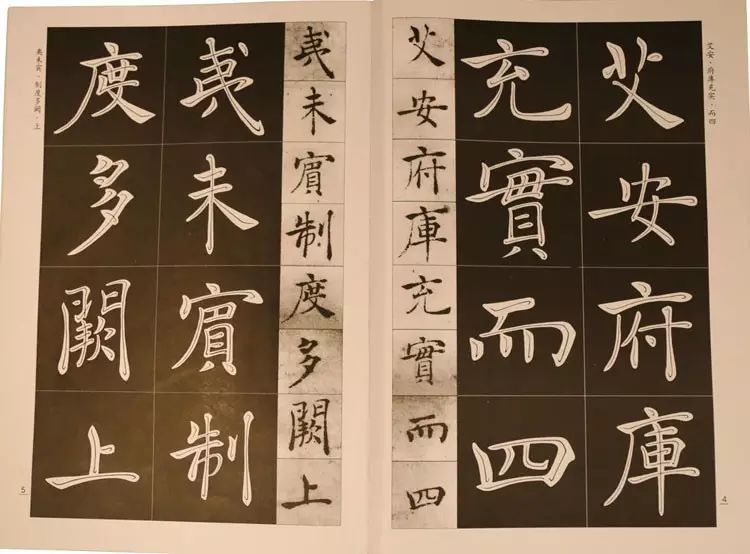 艾安·府庫充实·而四
艾安府庫
充實而四
艾安府庫充實而四
4
夷未賓制度多闕上
夷未賓制
度多闕上
夷未宾·制度多阙·上
5